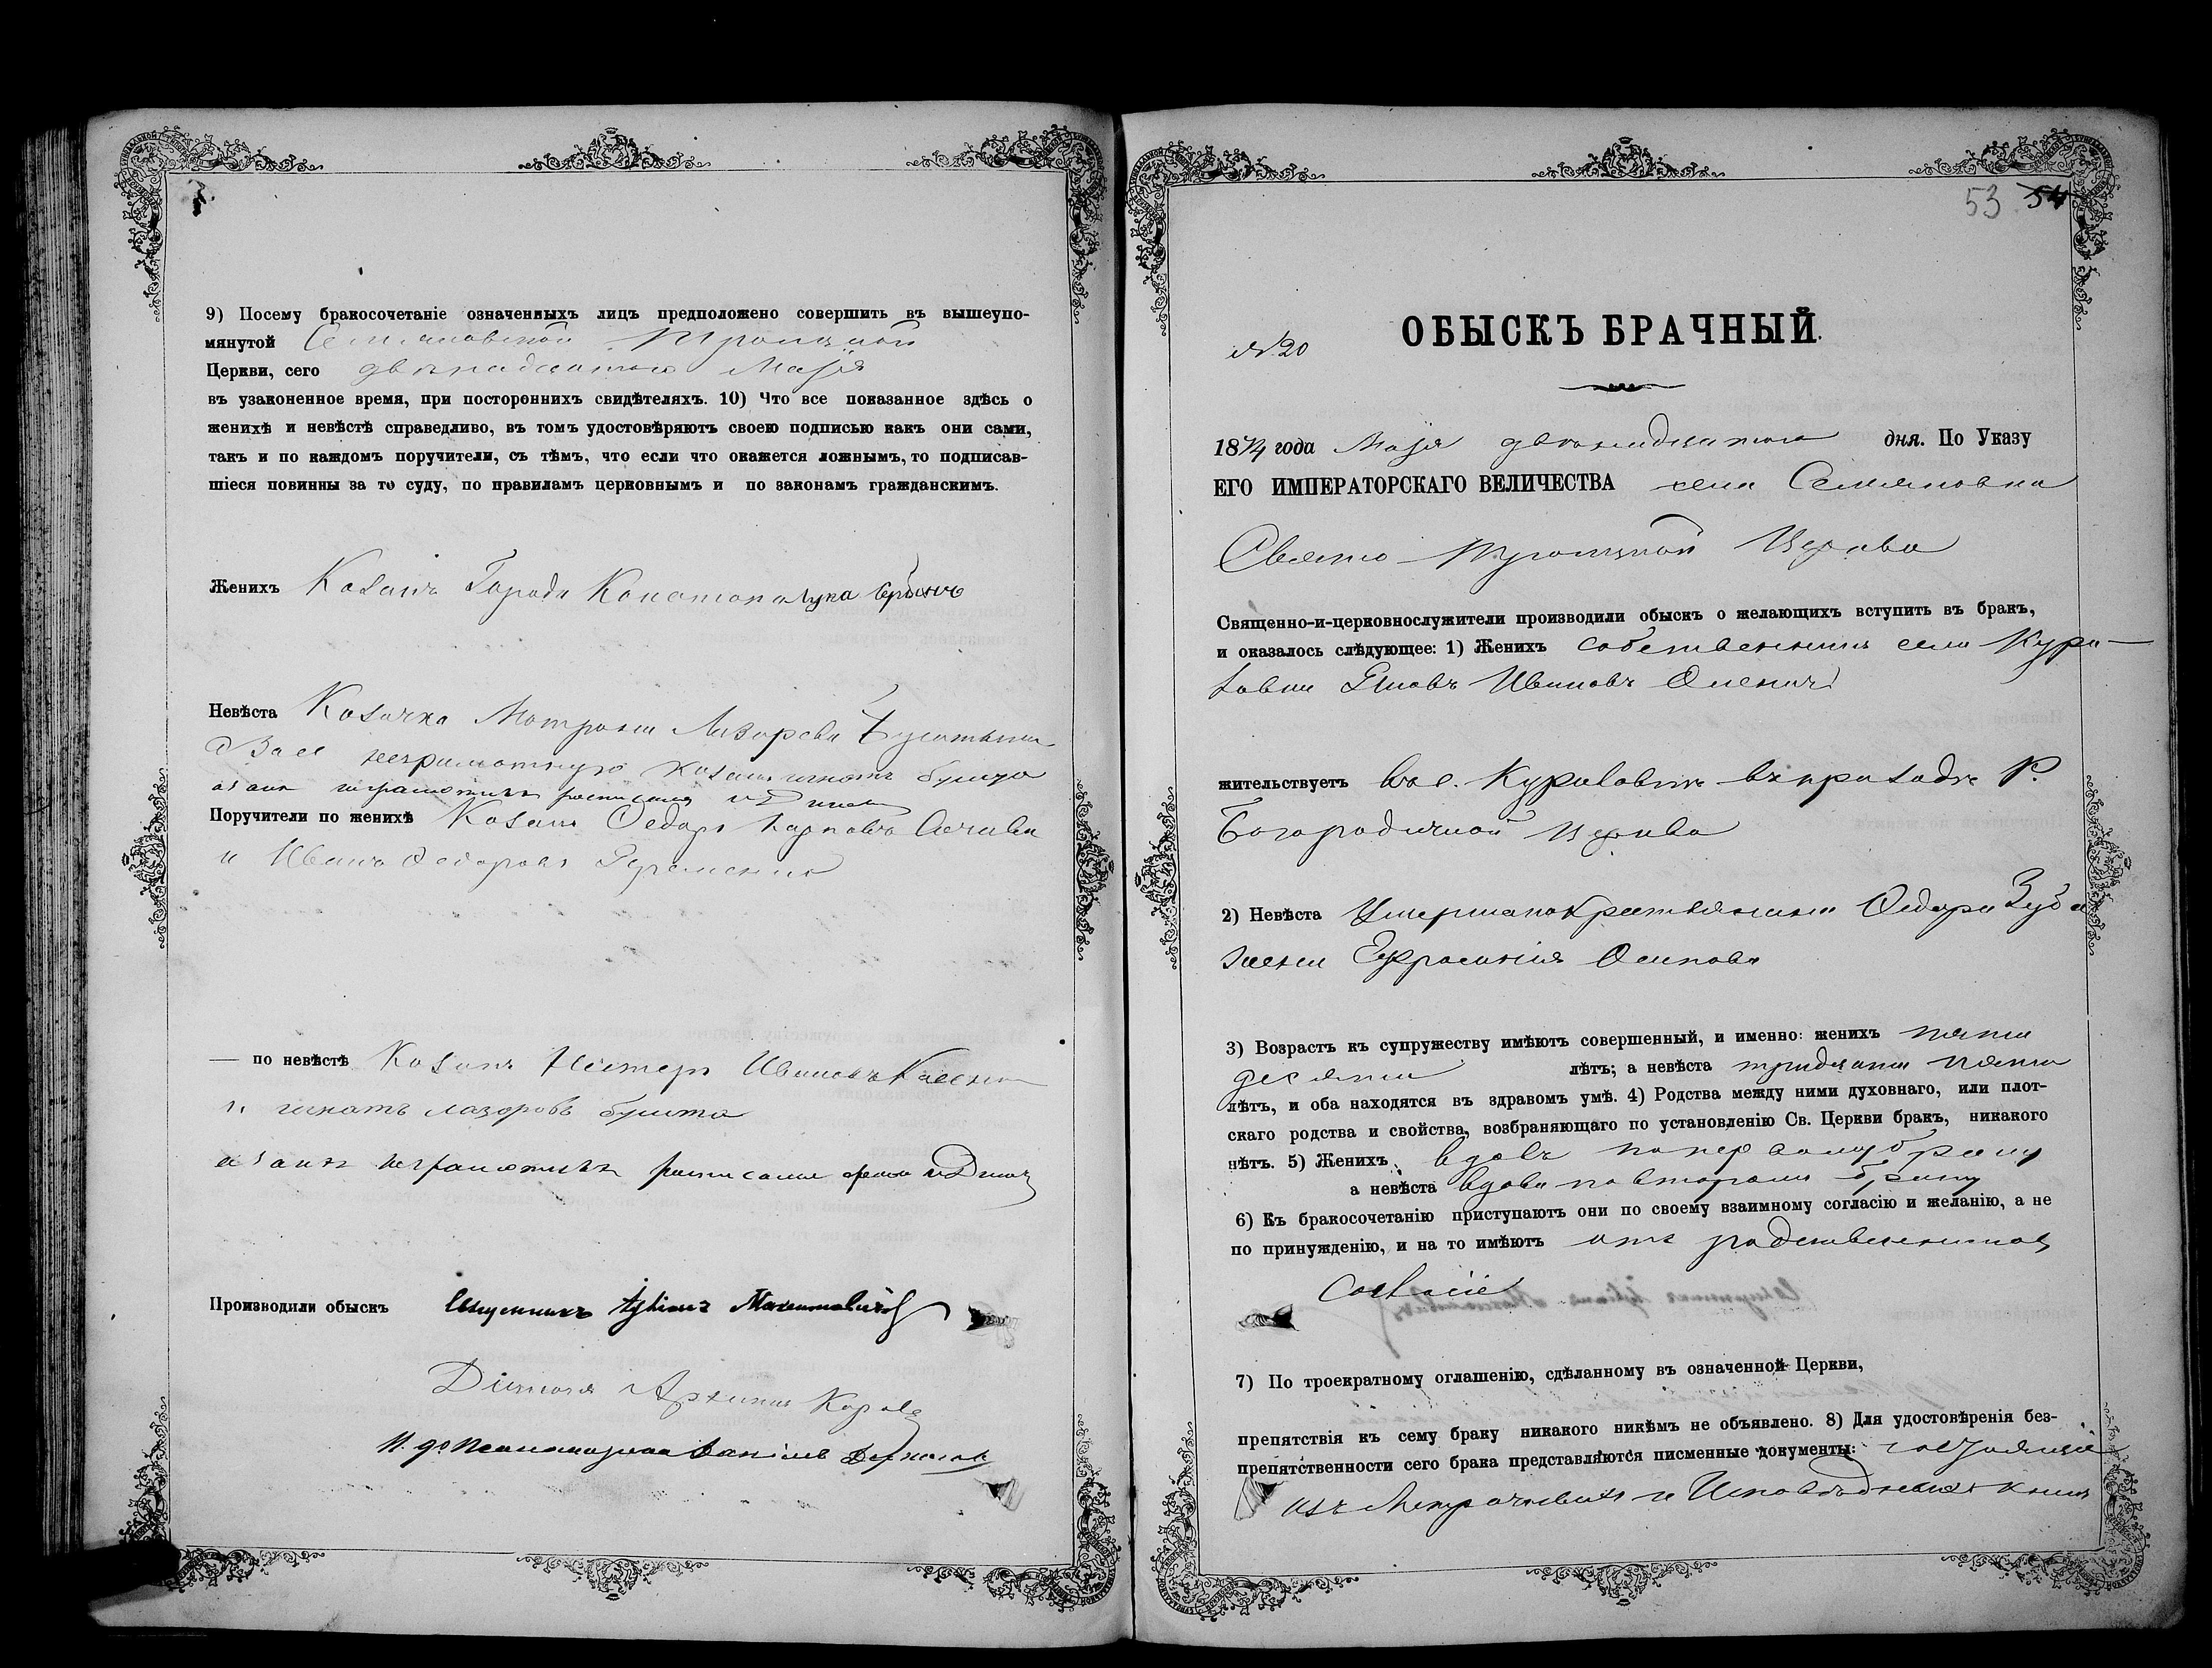 9) Посему бракосочетаніе означенныхъ лицъ предположено совершить въ вышеупо-
мянутой Семяновской Троицкой
Церкви, сего двѣнадцатаго Маія
въ узаконенное время, при постороннихъ свидѣтеляхъ. 10) Что все показанное здѣсь о
женихѣ и невѣстѣ справедливо, въ томъ удостовѣряютъ своею подписью какъ они сами,
такъ и по каждомъ поручители, съ тѣмъ, что если что окажется ложнымъ, то подписав-
шіеся повинны за то суду, по правиламъ церковнымъ и по законамъ гражданскимъ.
Женихъ Козакъ Города Конотопа Лука
Невѣста Козачка Мотрона Лазарева
неграмотную козакъ игнатъ
неграмотенъ
Поручители по женихѣ Козакъ Федоръ Карповъ
и Иванъ Федоровъ
— по невѣстѣ Козакъ Нестеръ Ивановъ
и игнатъ лазоровъ бушта
неграмотныхъ росписался
Производили обыскъ Священникъ Максимовичъ
Діаконъ
И. д. Псаломщика
53 54
ОБЫСКЪ БРАЧНЫЙ.
№ 20
1874 года Маія двѣнадцатаго дня. По Указу
ЕГО ИМПЕРАТОРСКАГО ВЕЛИЧЕСТВА села Семяновки
Свято-Троицкой Церкви
Священно-и-церковнослужители производили обыскъ о желающихъ вступить въ бракъ,
и оказалось слѣдующее: 1) Женихъ собственникъ села Кури-
ловки Яковъ Ивановъ
жительствуетъ въ с. Куриловкѣ въ приходѣ Р.
Богородичной церкви
2) Невѣста Умершаго Крестьянина Федора
жена Ефросинія Осипова
3) Возрастъ къ супружеству имѣютъ совершенный, и именно: женихъ пяти
десяти лѣтъ; а невѣста тридцати пяти
лѣтъ, и оба находятся въ здравомъ умѣ. 4) Родства между ними духовнаго, или плот-
скаго родства и свойства, возбраняющаго по установленію Св. Церкви бракъ, никакого
нѣтъ. 5) Женихъ вдовъ по первому браку
а невѣста вдова по второму браку
6) Къ бракосочетанію приступаютъ они по своему взаимному согласію и желанію, а не
по принужденію, и на то имѣютъ отъ родственниковъ
согласіе
7) По троекратному оглашенію, сдѣланному въ означенной Церкви,
препятствія къ сему браку никакого никѣмъ не объявлено. 8) Для удостовѣренія без-
препятственности сего брака представляются писменные документы:
изъ Метрическихъ и Исповѣдныхъ книгъ